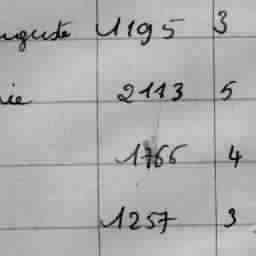 uguste 1195 3
ie 2113 5
1766 4
1257 3